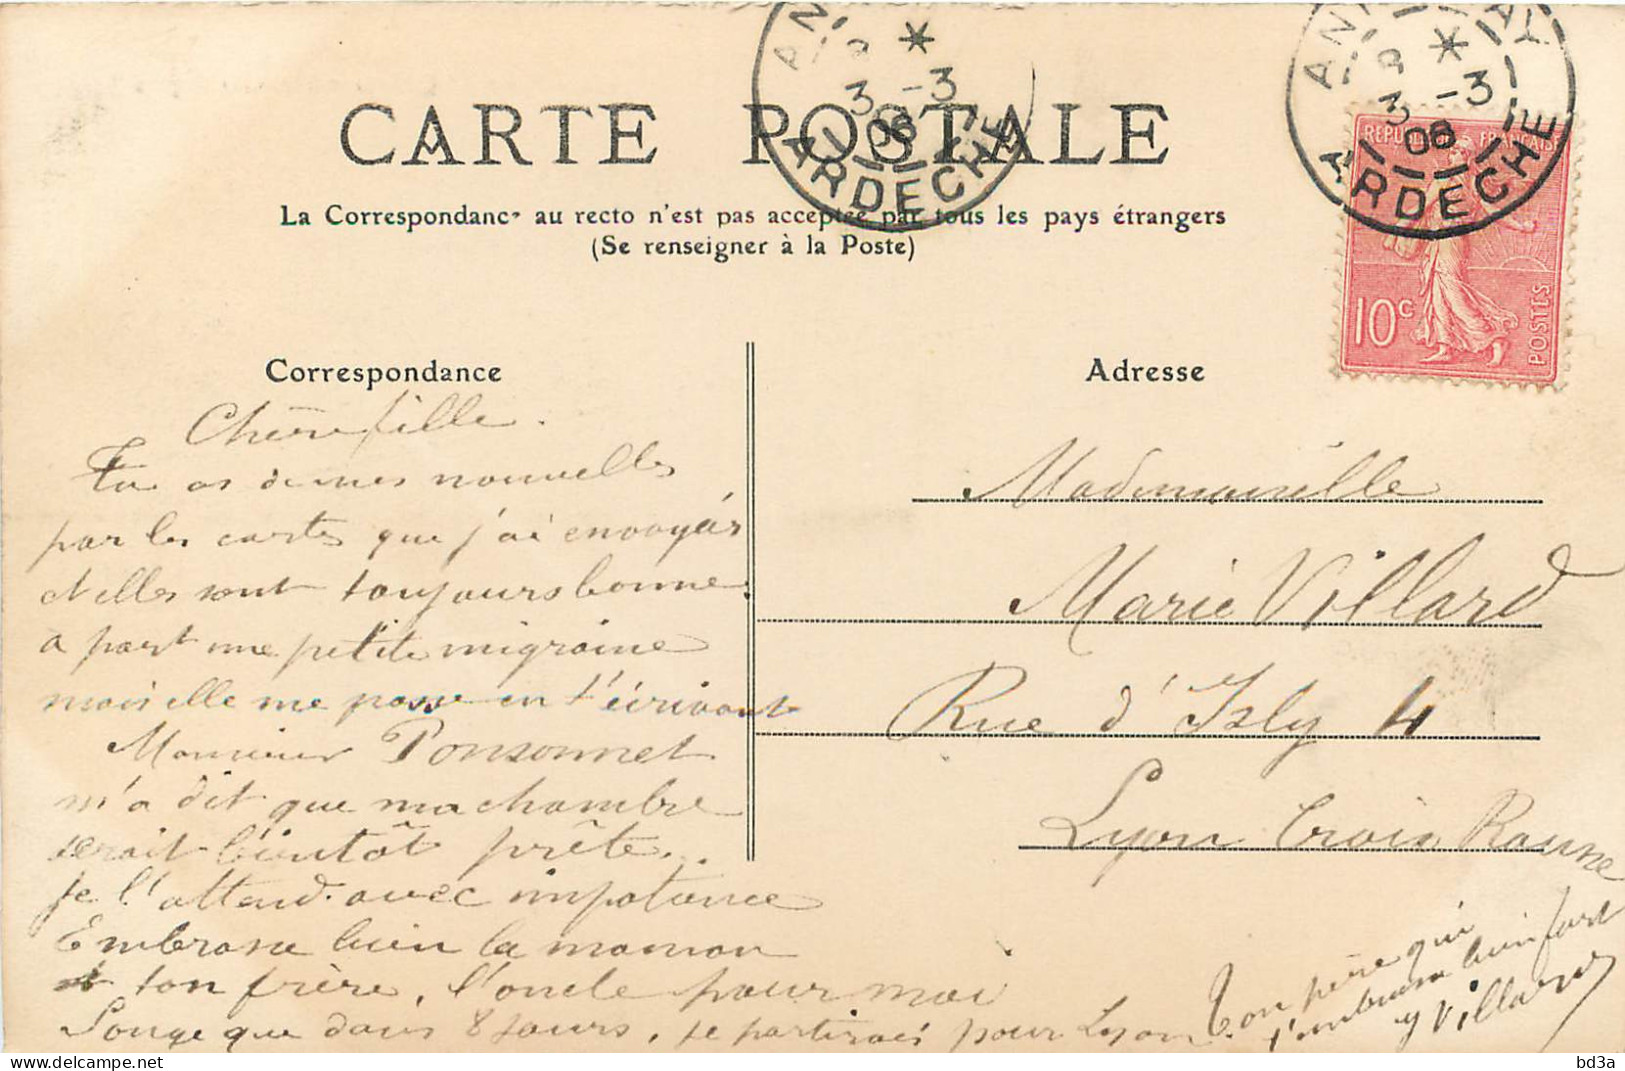 CARTE POSTALE
La Correspondance au recto n'est pas acceptée par tous les pays étrangers
(Se renseigner à la Poste)
ARDECHE
3 -3
08
ARDECHE
3 -3
08
REPUBLIQUE FRANÇAISE
10c
POSTES
Correspondance
Adresse
Chère fille.
Tu as de mes nouvelles
par les cartes que j'ai envoyés
et elles sont toujours bonne
a part une petite migraine
mais elle me passe en t'écrivant
Monsieur Ponsonnet
m'a dit que ma chambre
serait bientôt prête.
je l'attend avec impatance
Embrasse bien la maman
et ton frère, l'oncle pour moi
Songe que dans 8 jours, je partirais pour Lyon
Ton père qui
t'embrasse bien fort
Villard
Mademoiselle
Marie Villard
Rue d'Isly 4
Lyon Croix Rousse
bd3a